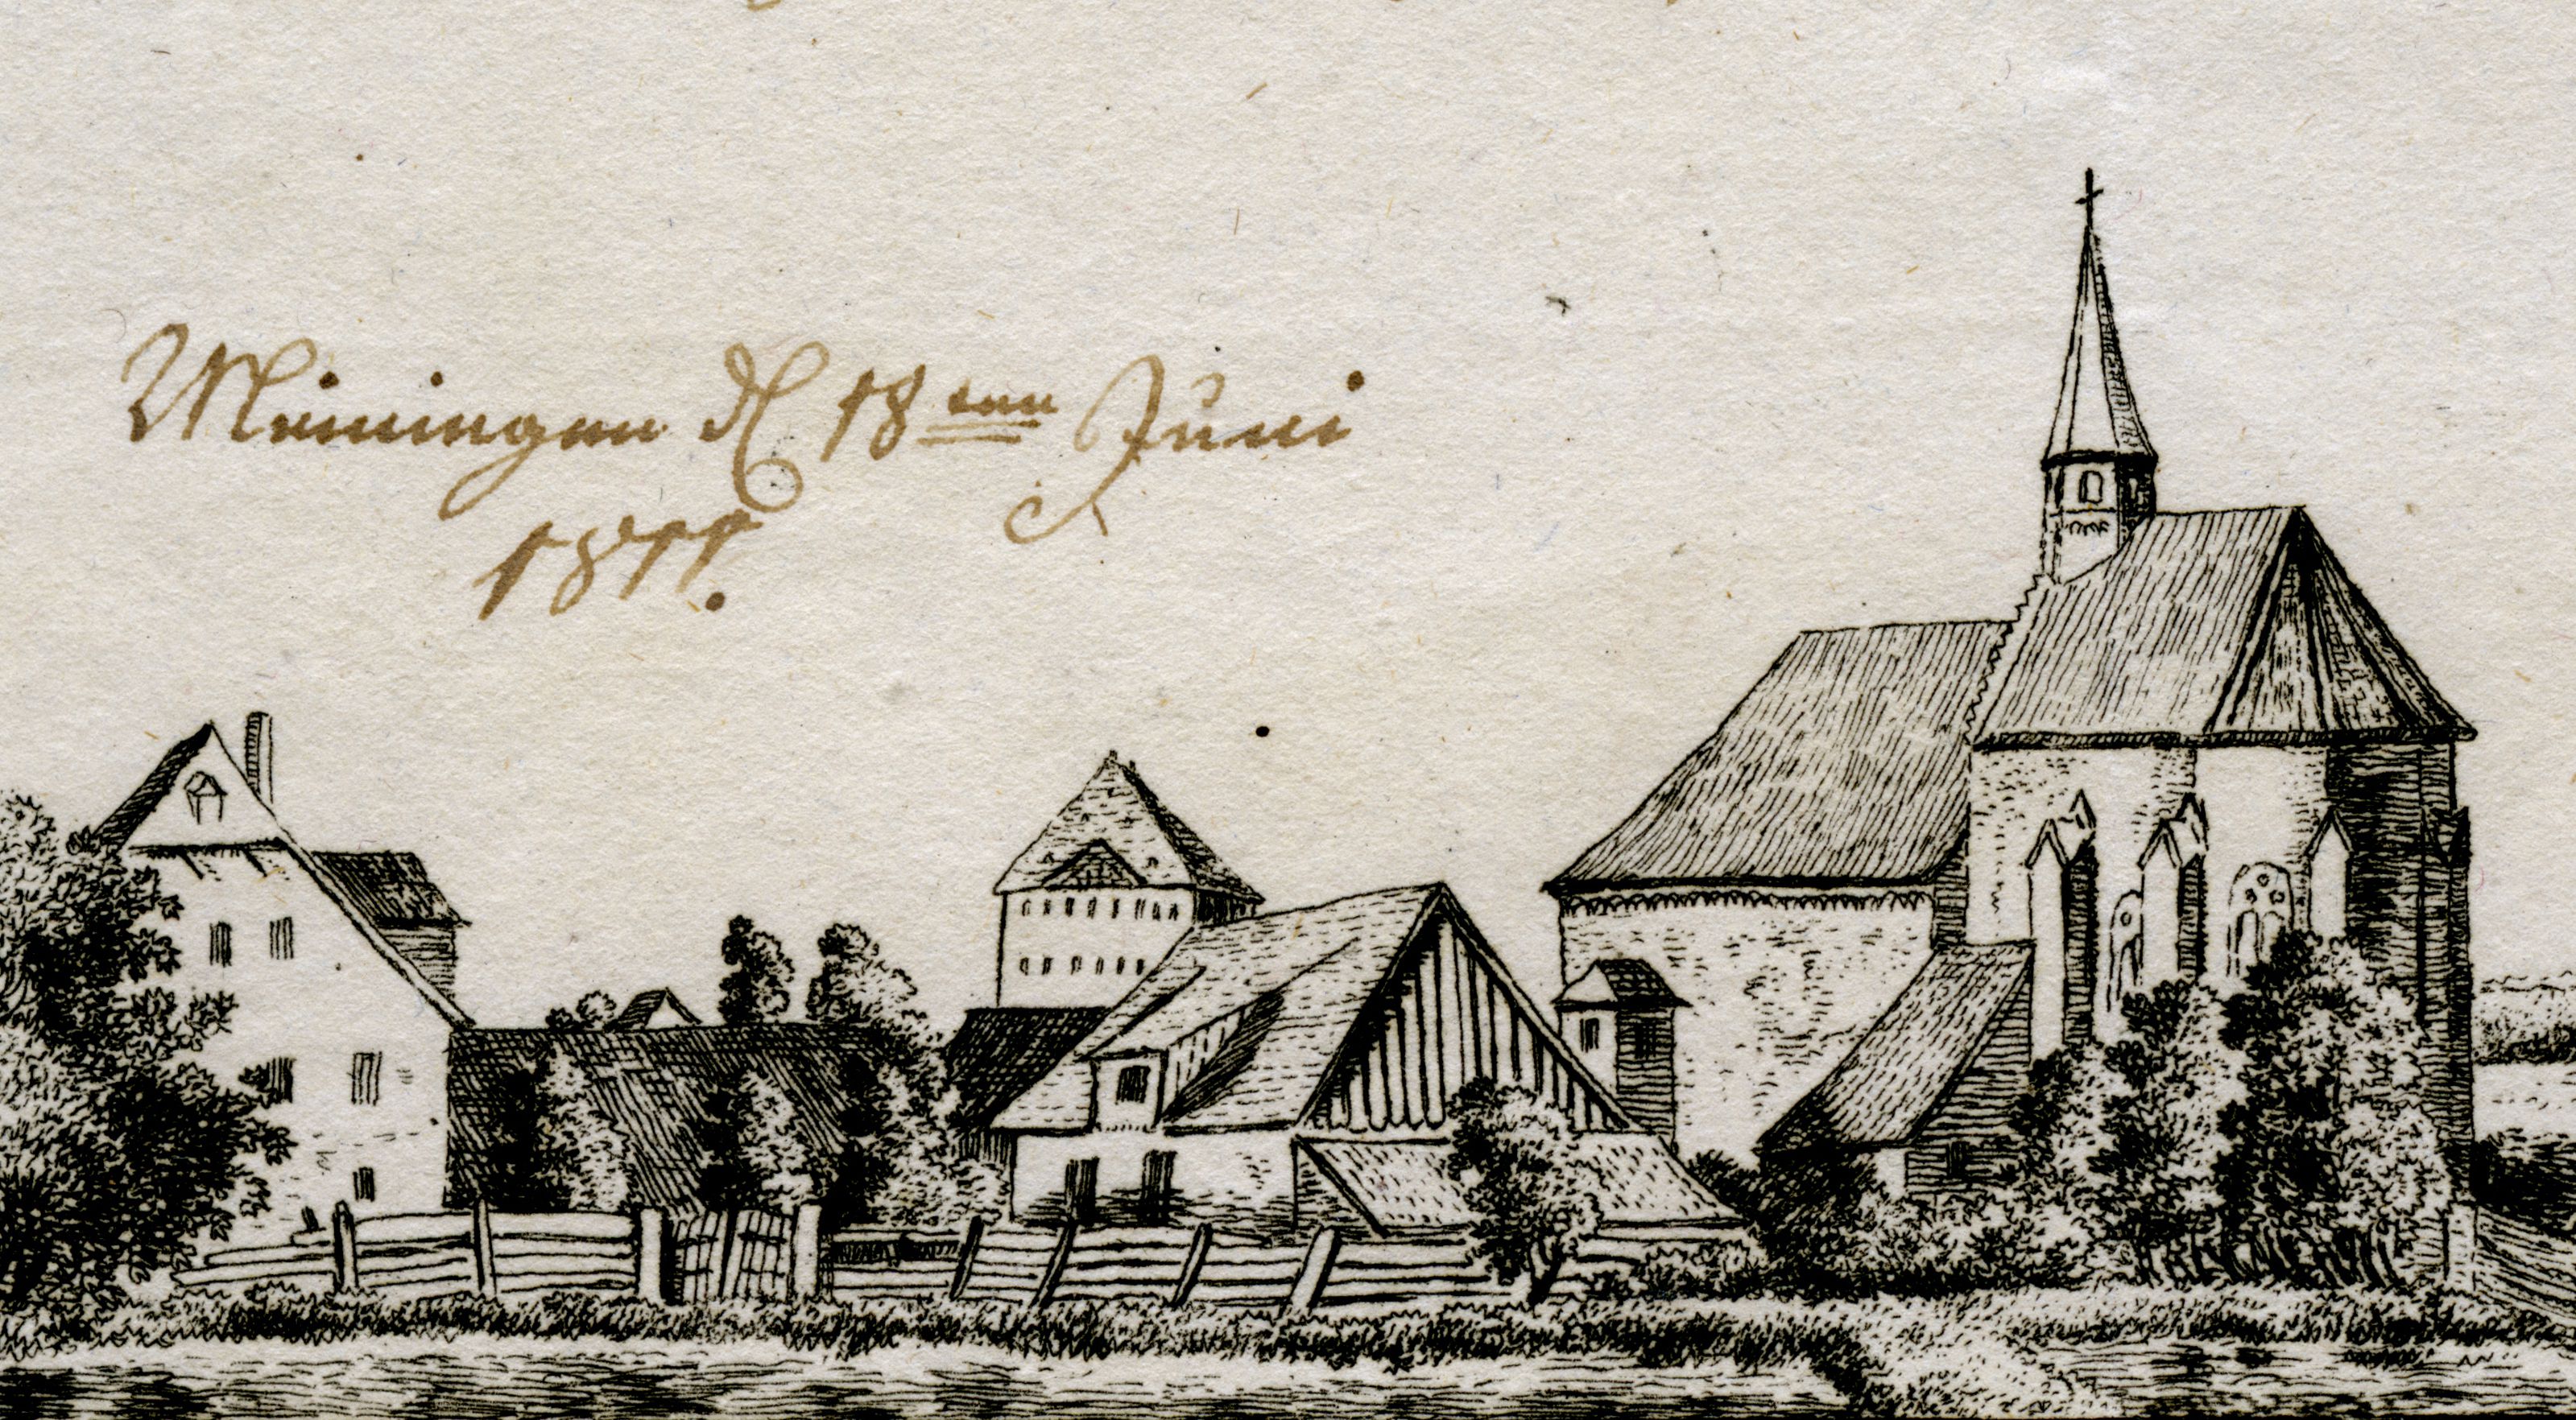 Meiningen d 18ten Juni
1811.